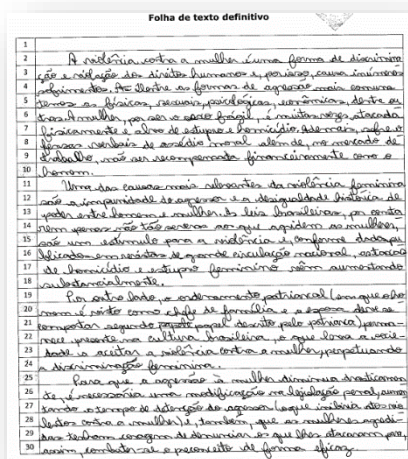 Folha de texto definitivo
1
2 A violência contra a mulher é uma forma de discrimina
3 ção e violação dos direitos humanos e, por isso, causa inúmeros
4 sofrimentos. Dentre as formas de agressão mais comuns
5 temos as físicas, sexuais, psicológicas, econômicas, dentre ou
6 tras. A mulher, por ser o sexo frágil, é muitas vezes, atacada
7 fisicamente e alvo de estupro e homicídio. Ademais, sofre
8 verbais de assédio moral além de, no mercado de
9 trabalho, não ser recompensada financeiramente como o
10 homem.
11 Uma das causas mais relevantes da violência feminina
12 são a impunidade do agressor e a desigualdade histórica de
13 poder entre homem e mulher. As leis brasileiras, por conta
14 rem penas não tão severas ao que agridem as mulheres,
15 são um estímulo para a violência e, conforme dados pu
16 blicados em revistas de grande circulação nacional, os
17 de homicídio e estupro feminino vêm aumentando
18 substancialmente.
19 Por outro lado, o ordenamento patriarcal (em que o ho
20 mem é visto como chefe de família e a esposa deve se
21 comportar segundo papel descrito pelo patriarca) perma
22 nece presente na cultura brasileira, o que leva a socie
23 dade a aceitar a violência contra a mulher, perpetuando
24 a discriminação feminina.
25 Para que a agressão à mulher diminua drasticamen
26 te, é necessária uma modificação na legislação penal, aumen
27 tando o tempo de detenção do agressor (o que inibiria atos vio
28 lentos contra a mulher) e, também, que as mulheres agredi
29 das tenham coragem de denunciar o que lhes atacaram para,
30 assim, combater-se o preconceito de forma eficaz.